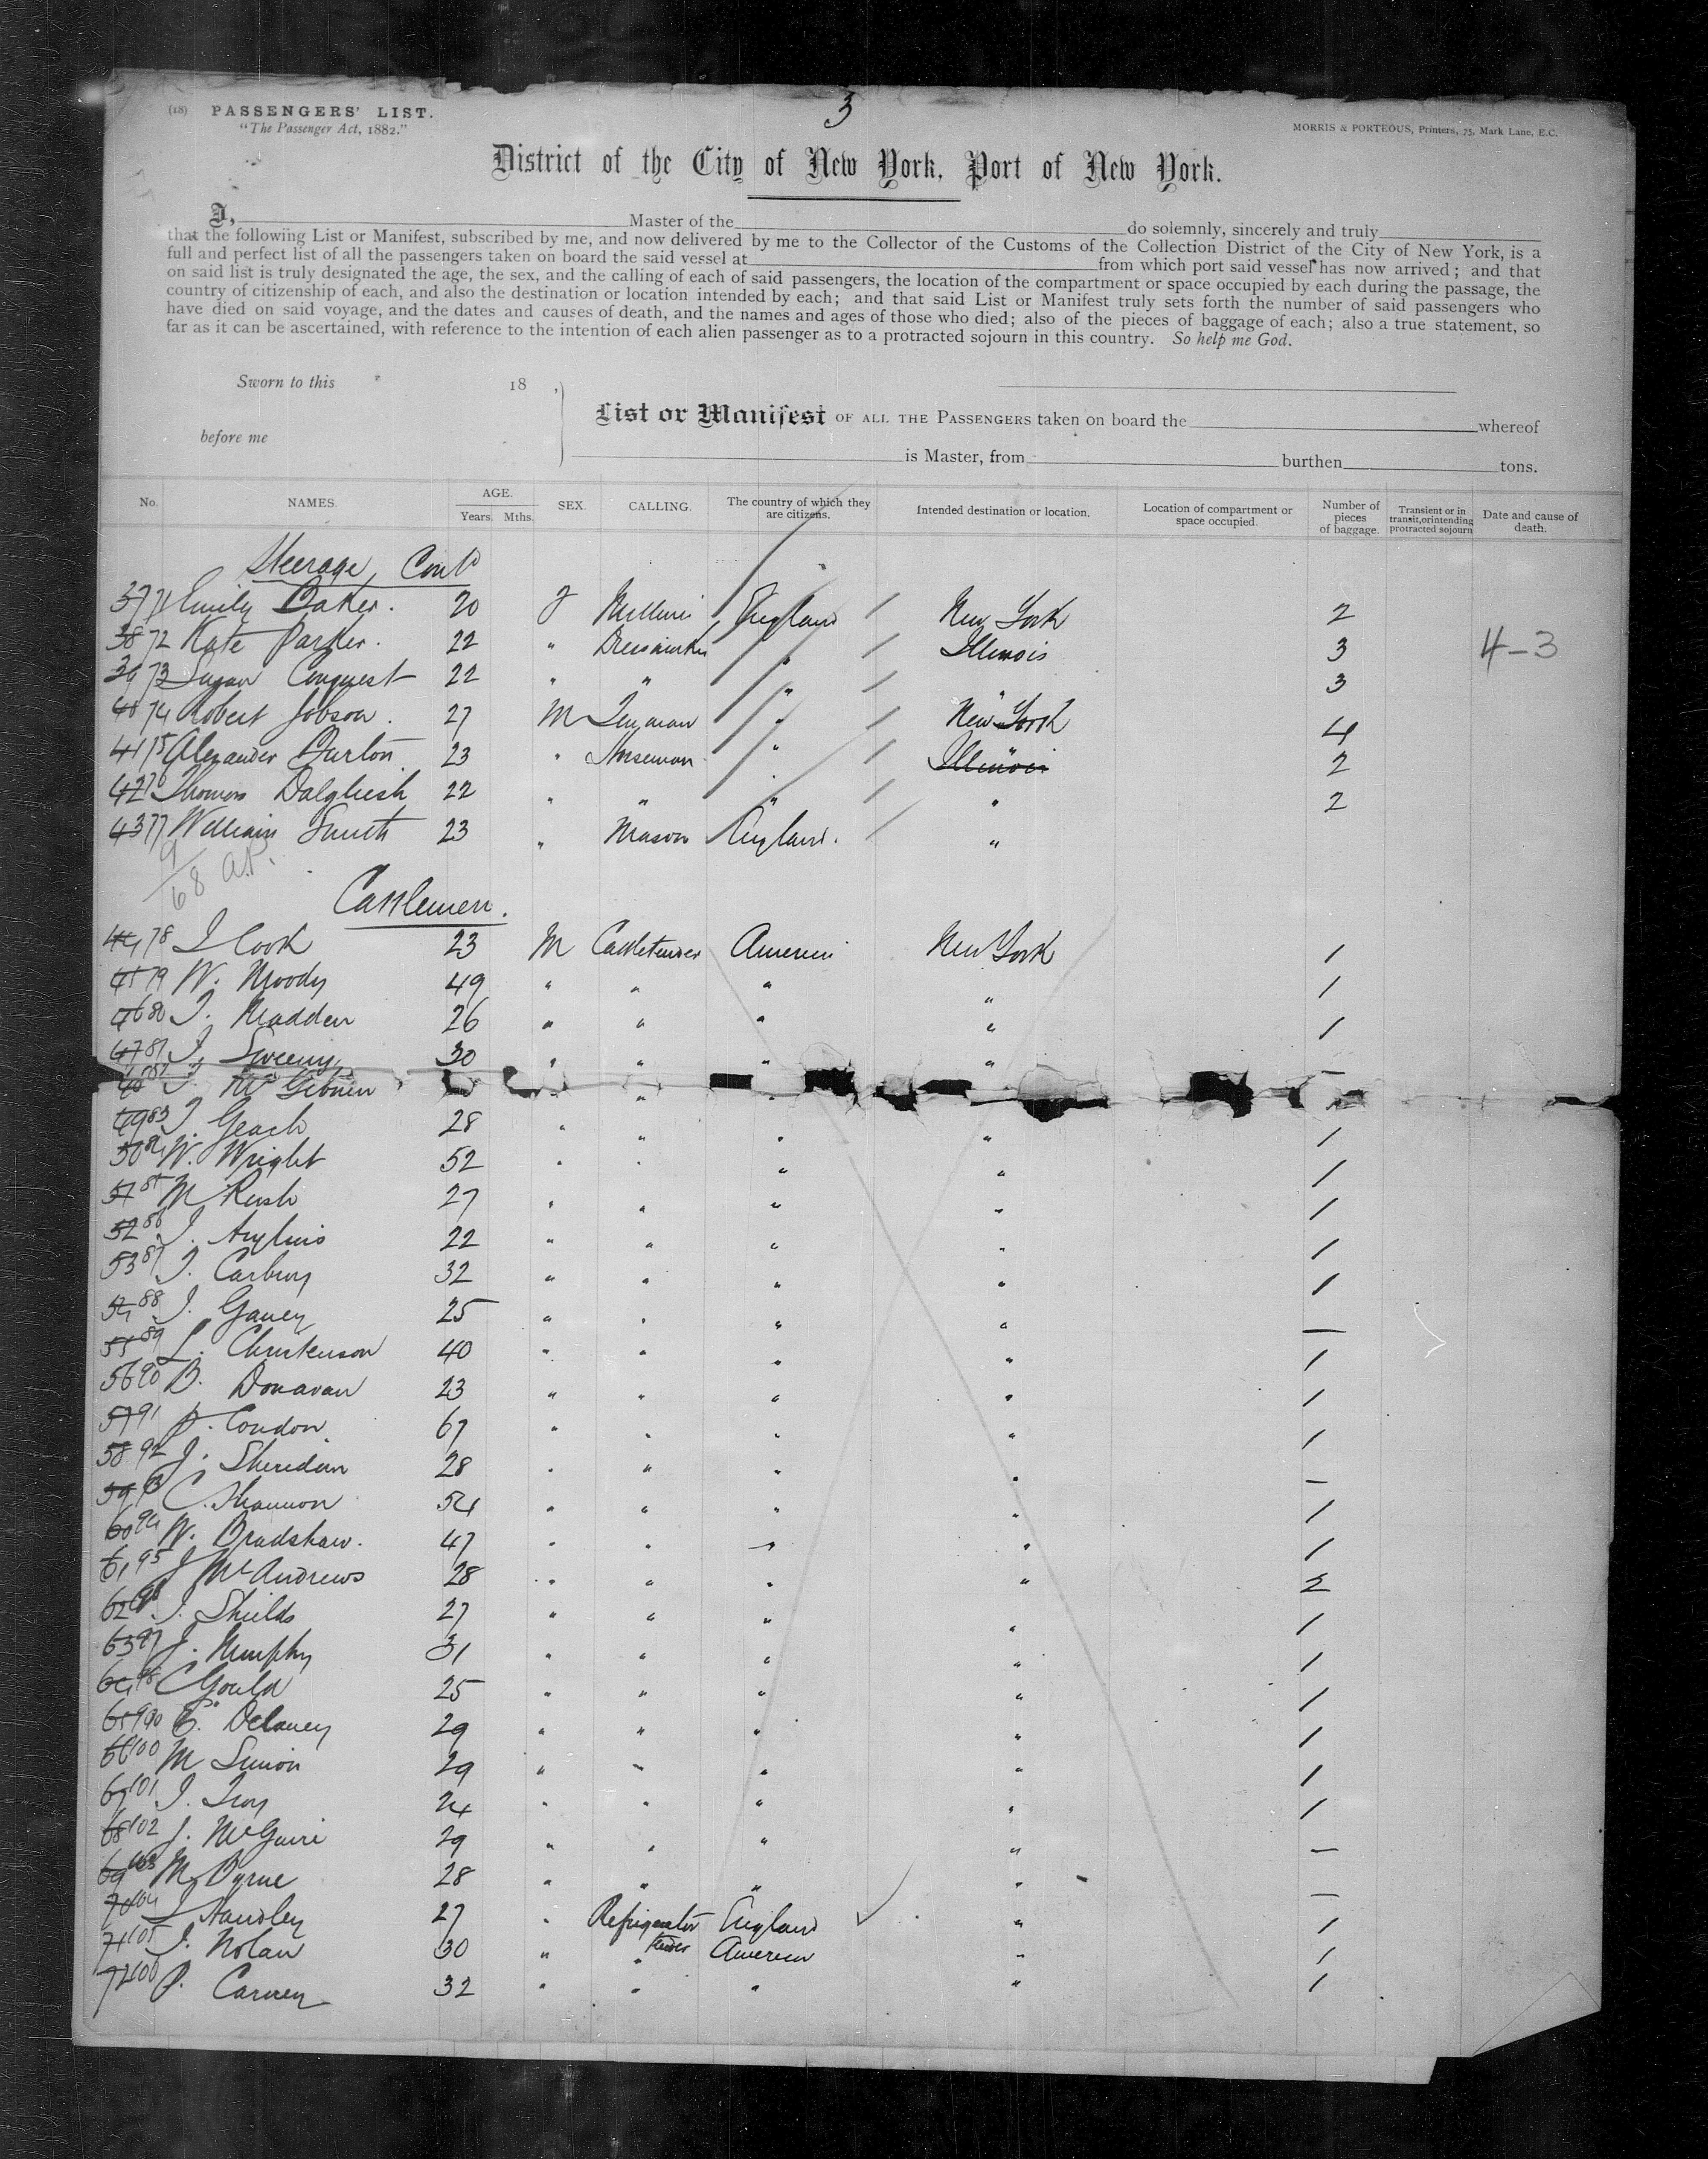 (18) PASSENGERS' LIST. 3
"The Passenger Act, 1882." MORRIS & PORTEOUS, Printers, 75, Mark Lane, E.C.
District of the City of New York, Port of New York.
I, Master of the do solemnly, sincerely and truly
that the following List or Manifest, subscribed by me, and now delivered by me to the Collector of the Customs of the Collection District of the City of New York, is a
full and perfect list of all the passengers taken on board the said vessel at from which port said vessel has now arrived; and that
on said list is truly designated the age, the sex, and the calling of each of said passengers, the location of the compartment or space occupied by each during the passage, the
country of citizenship of each, and also the destination or location intended by each; and that said List or Manifest truly sets forth the number of said passengers who
have died on said voyage, and the dates and causes of death, and the names and ages of those who died; also of the pieces of baggage of each; also a true statement, so
far as it can be ascertained, with reference to the intention of each alien passenger as to a protracted sojourn in this country. So help me God.
Sworn to this 18 ,
List or Manifest OF ALL THE PASSENGERS taken on board the whereof
before me
is Master, from burthen tons.
No. NAMES. AGE. Years. Mths. SEX. CALLING. The country of which they are citizens. Intended destination or location. Location of compartment or space occupied. Number of pieces of baggage. Transient or in transit, or intending protracted sojourn Date and cause of death.
Steerage Contd
37 71 Emily Baker. 20 F England / New York 2
38 72 Kate Parker. 22 " Dressmaker " / Illinois 3 4-3
39 73 Susan Conquest 22 " " " / " 3
40 74 Robert Jobson. 27 M " / New York 4
41 75 Alexander Burton 23 " Norseman " / Illinois 2
42 76 Thomas Dalgliesh 22 " " " / " 2
43 77 William Smith 23 " Mason England. / "
9/68 a.P.
Cattlemen.
44 78 J Cook 23 M Cattletender America New York 1
45 79 W. Moody 49 " " " " 1
46 80 J. Madden 26 " " " " 1
47 81 J. Sweeny 30 " " " " -
48 82 J. " " "
49 83 J. Geach 28 " " " " 1
50 84 W. Wright 52 " " " " 1
51 85 M Rush 27 " " " " 1
52 86 J. 22 " " " " 1
53 87 J. Carbury 32 " " " " 1
54 88 J. Gavey 25 " " " " —
55 89 L. Christenson 40 " " " " 1
56 90 B. Donavan 23 " " " " 1
57 91 P. Condon 67 " " " " 1
58 92 J. Sheridan 28 " " " " -
59 93 C. Shannon 54 " " " " 1
60 94 W. Bradshaw. 47 " " " " 1
61 95 J McAndrews 28 " " " " 2
62 96 J. Shields 27 " " " " 1
63 97 J. Murphy 31 " " " " 1
64 98 C Gould 25 " " " " 1
65 99 E. Delaney 29 " " " " 1
66 100 M Simon 29 " " " " 1
67 101 J. Troy 24 " " " " 1
68 102 J. McGuire 29 " " " " —
69 103 M. Byrne 28 " " " " —
70 104 J Handley 27 " Refrigerator tender England " 1
71 105 J. Nolan 30 " " America " 1
72 106 P. Carney 32 " " " " 1